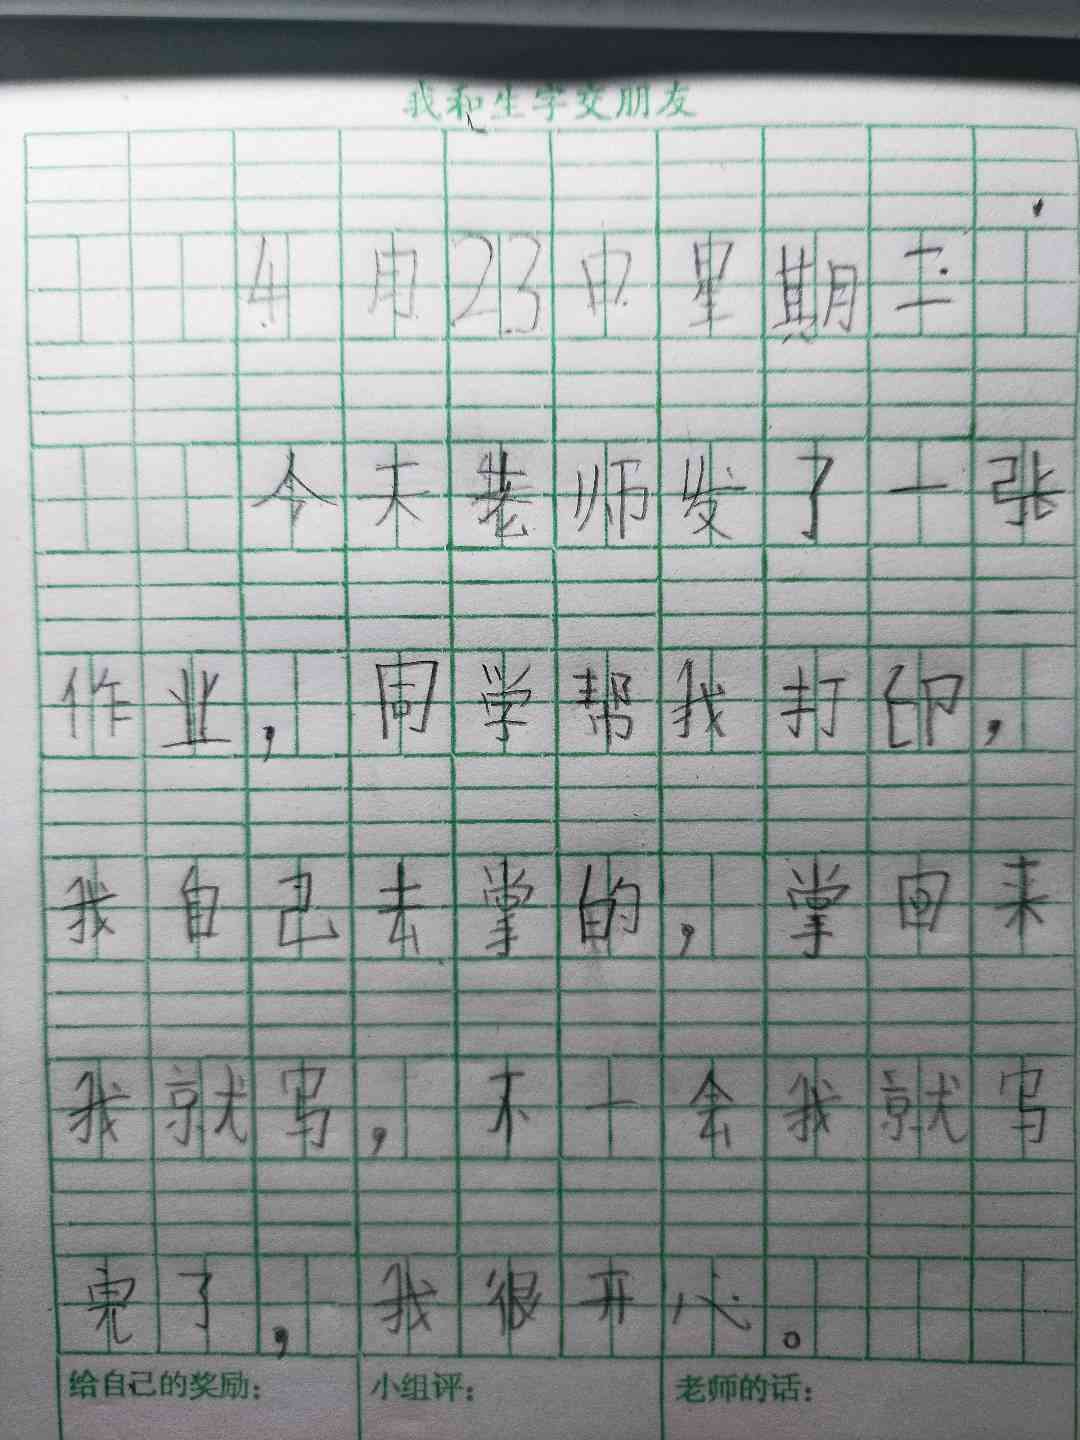 我和生字交朋友
4月23日星期二
今天老师发了一张
作业，同学帮我打印，
我自己去掌的，掌回来
我就写，不一会我就写
完了，我很开心。
给自己的奖励： 小组评： 老师的话：